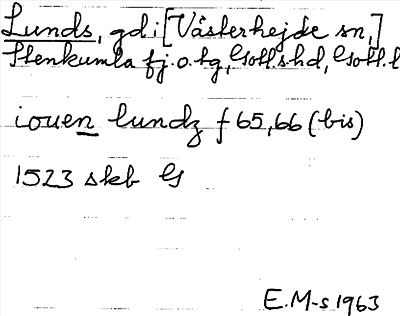 Lunds, gd i [Västerhejde sn,]
Stenkumla fj. o. tg, Gotl.s hd, Gotl. l
iouen lundz f 65, 66 (bis)
1523 skb G
E.M-s 1963